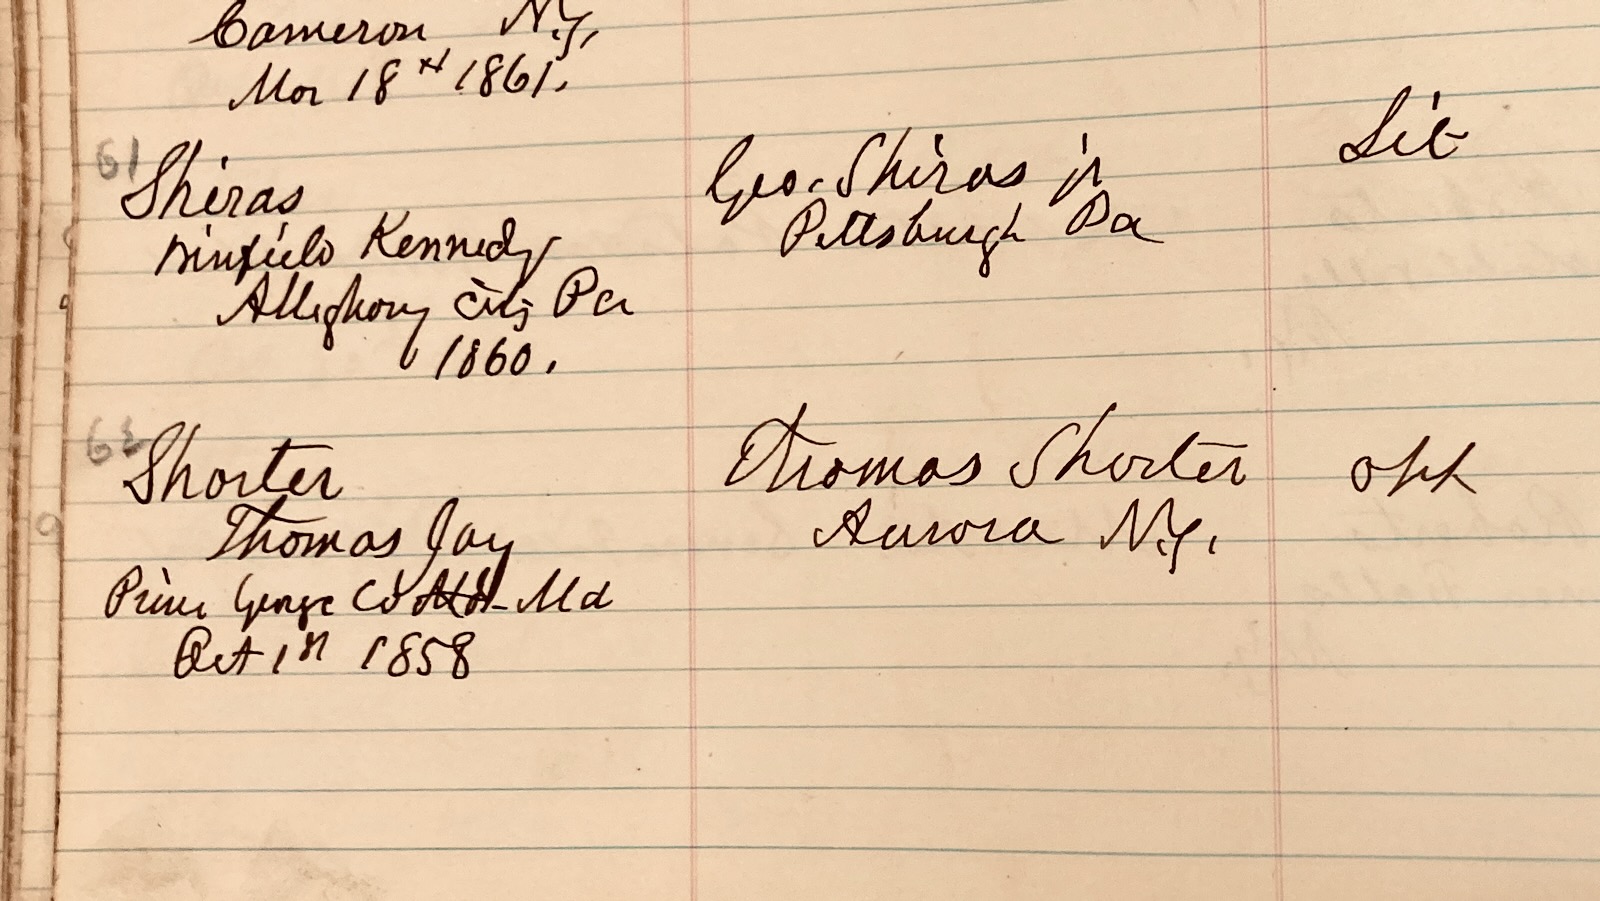 Cameron N.Y.
Mar 18th 1861.
61
Shiras
Winfield Kennedy
Alleghany City Pa
1860.
Geo. Shiras jr
Pittsburgh Pa
Lit
Shorter
Thomas Jay
Prince George Co Md
Oct 1st 1858
Thomas Shorter
Aurora N.Y.
opt